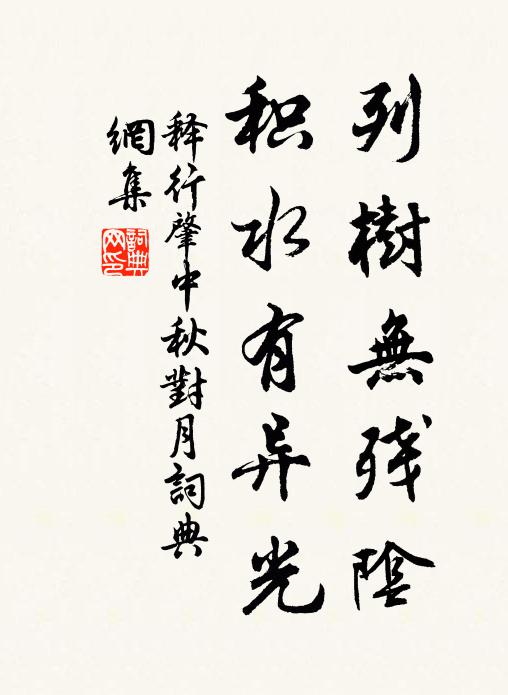 列樹無残陰
积水有异光
释行肇中秋對月詞典
網集
詞典网印